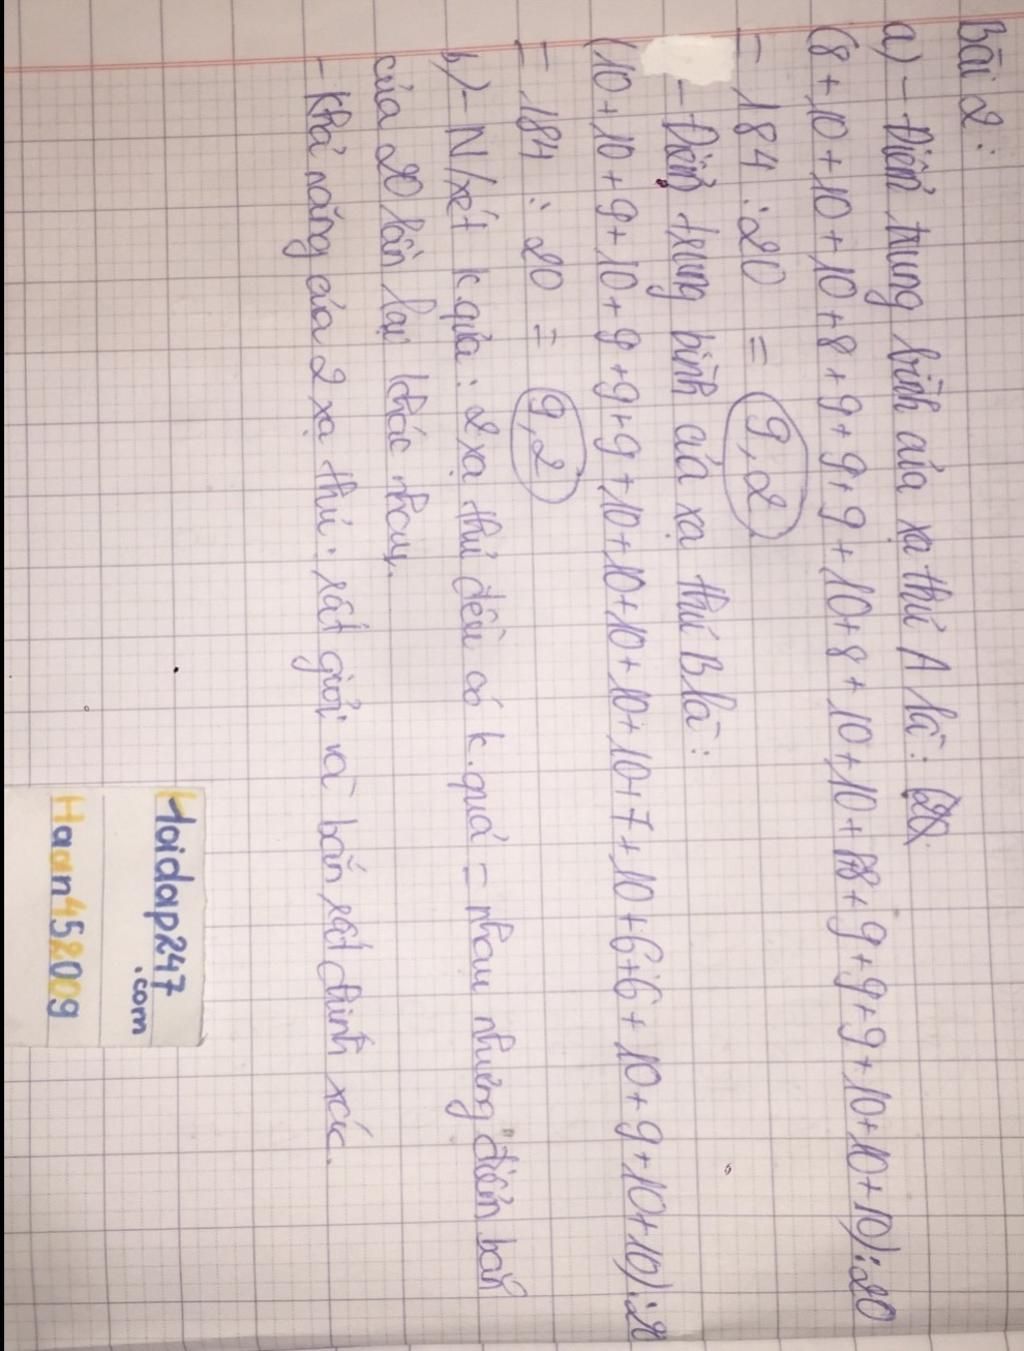 Bài 2:
a) - Điểm trung bình của xạ thủ A là:
(8+10+10+10+8+9+9+9+10+8+10+10+8+9+9+9+10+10+10):20
= 184 : 20 = 9,2
- Điểm trung bình của xạ thủ B là:
(10+10+9+10+9+9+9+10+10+10+10+10+7+10+6+6+10+9+10+10):20
= 184 : 20 = 9,2
b) - N/xét k.quả: 2 xạ thủ đều có k.quả = nhau nhưng điểm bắn
của 20 lần lại khác nhau.
- Khả năng của 2 xạ thủ: rất giỏi và bắn rất chính xác.
Hoidap247
.com
Haan452009